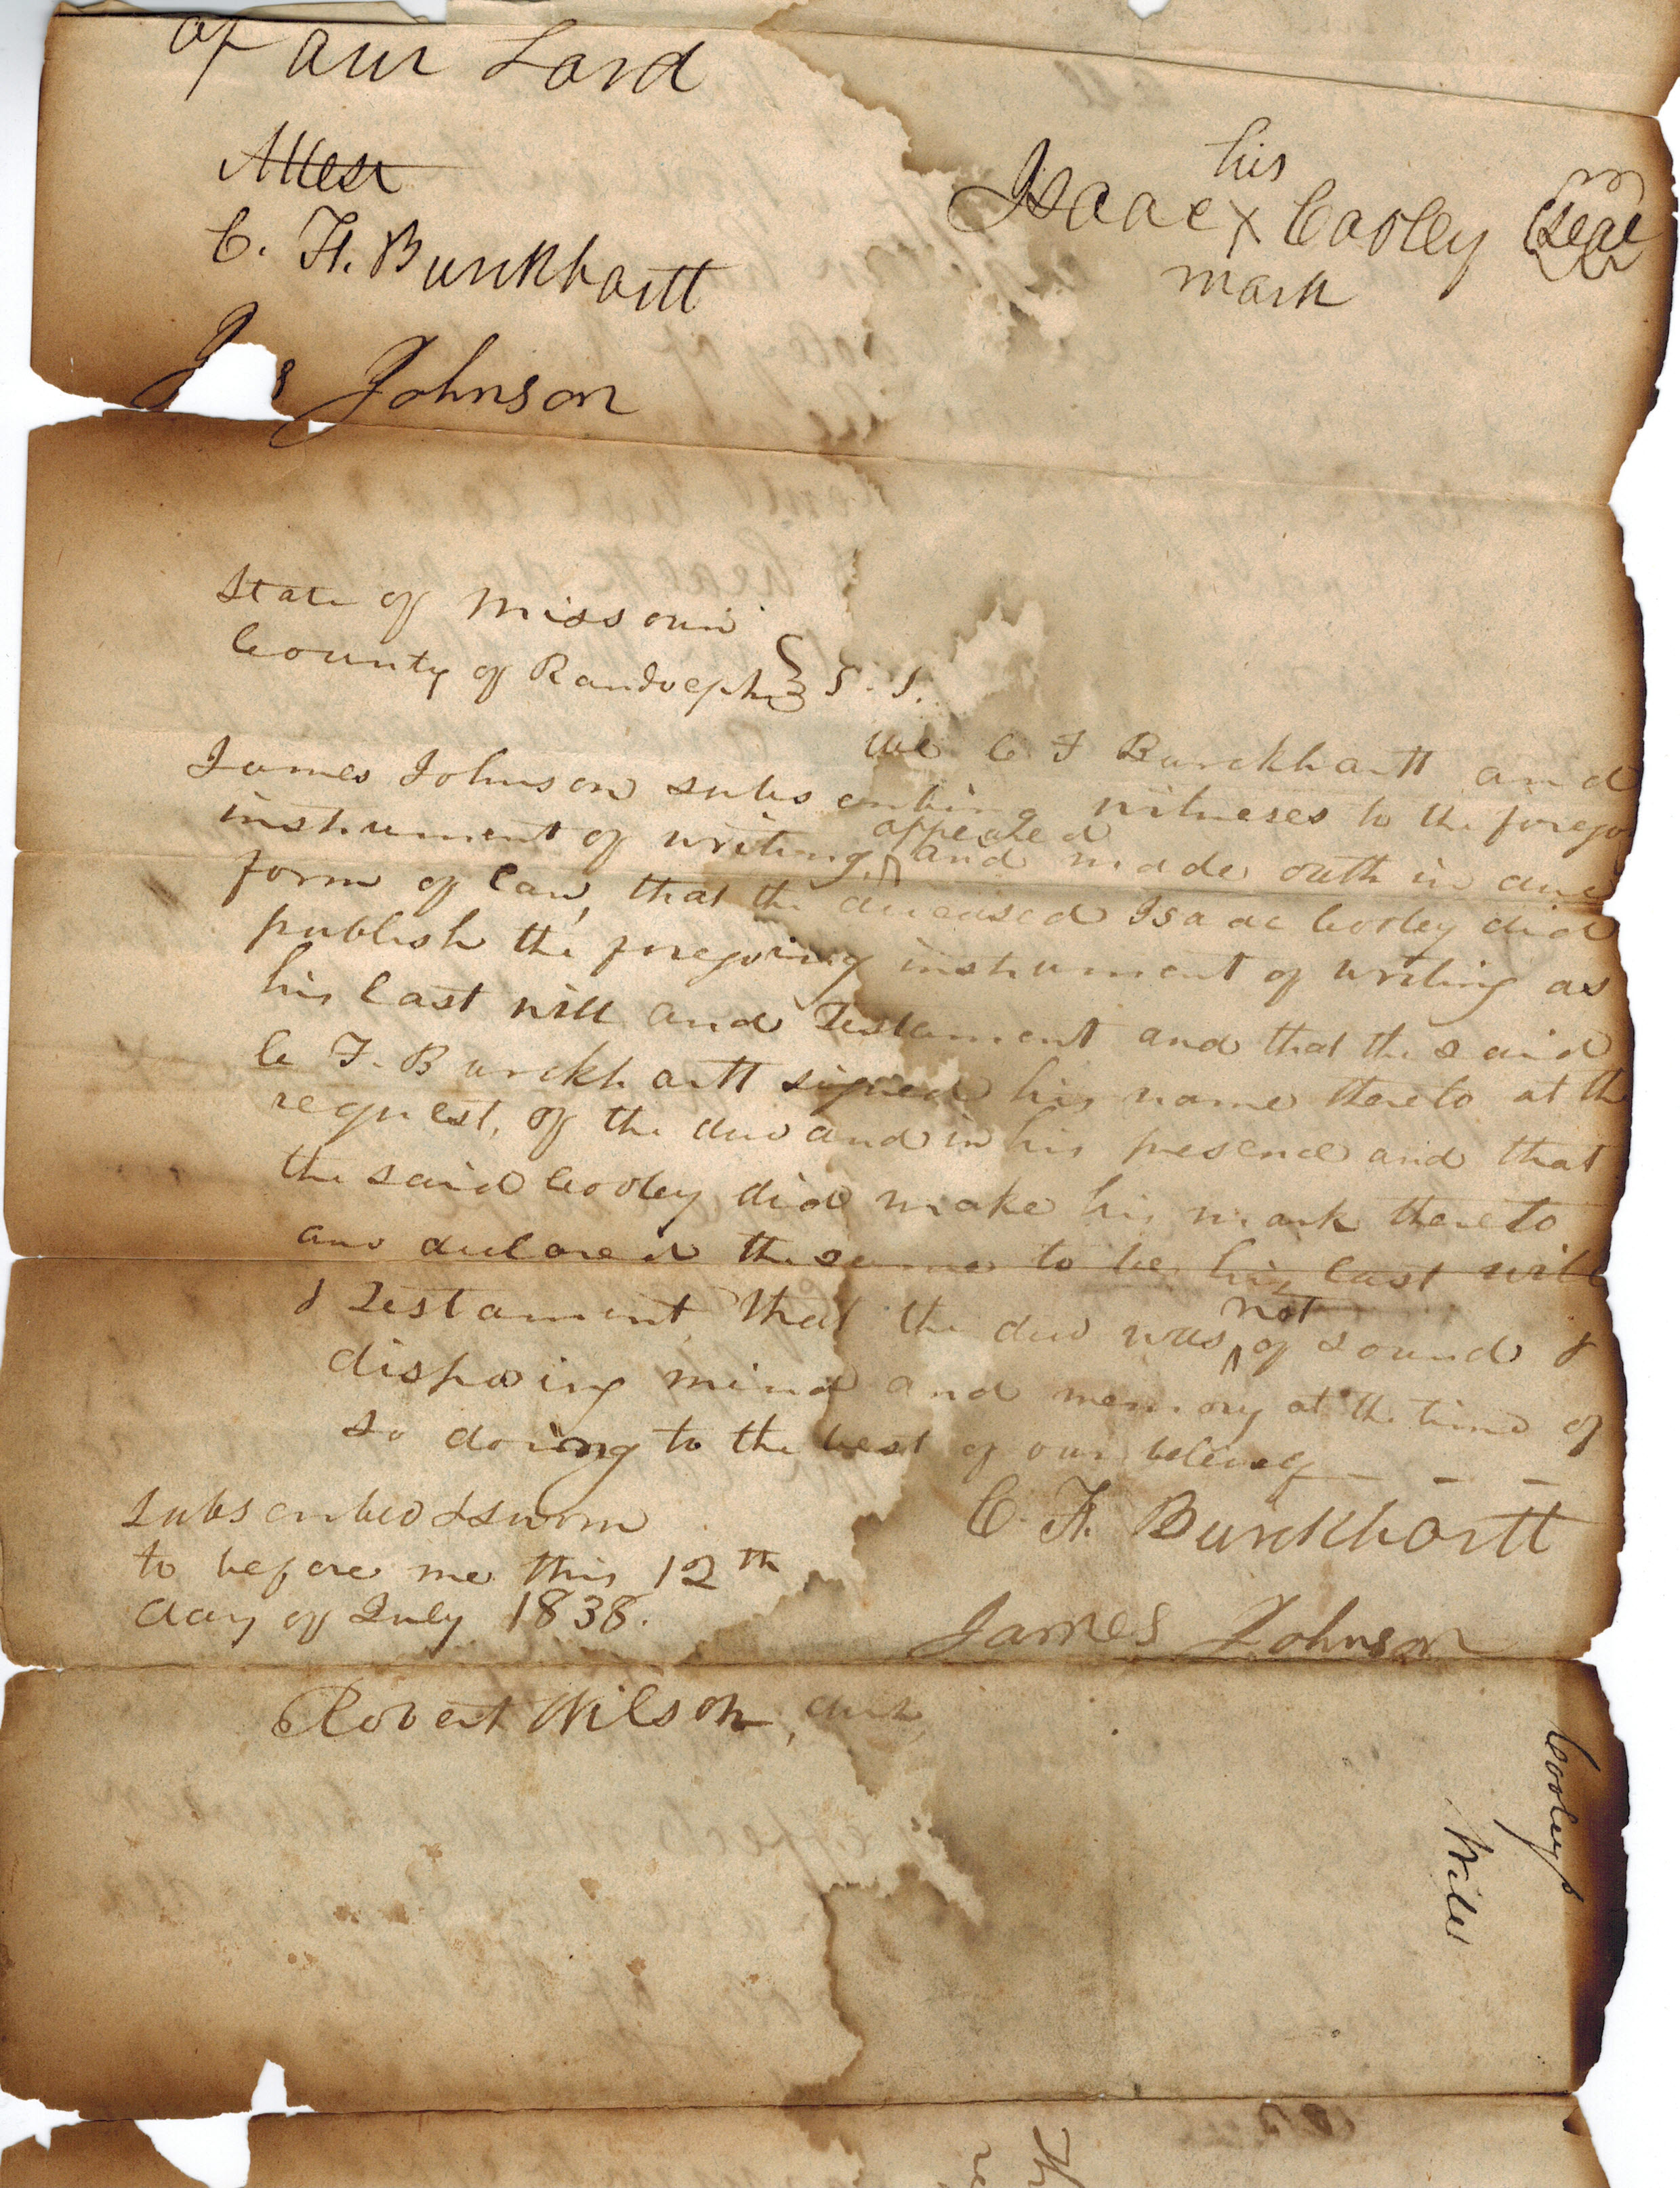 of our Lord
Attest
his
Isaac X Cooley (Seal
mark
C. F. Burckhartt
J s Johnson
State of Missouri
County of Randolph } S. S.
We C F Burckhartt and
James Johnson subscribing witneses to the forego
appeared
instrument of writing, ^ and made outh in due
form of law, that the deceased Isaac Cooley did
publish the foregoing instrument of writing as
his last will and Testament and that the said
C F. Burckhartt signed his name thereto at th
request, of the decd and in his presence and that
the said Cooley did make his mark thereto
and declared the same to be his last will
not
& Testament, that the decd was ^ of sound &
disposing mind and memory at the time of
so doing to the best of our belief - - -
Subscribed & sworn
to before me this 12th
day of July 1838.
C. F. Burckhartt
James Johnson
Robert Wilson, clerk
Cooleys
Will